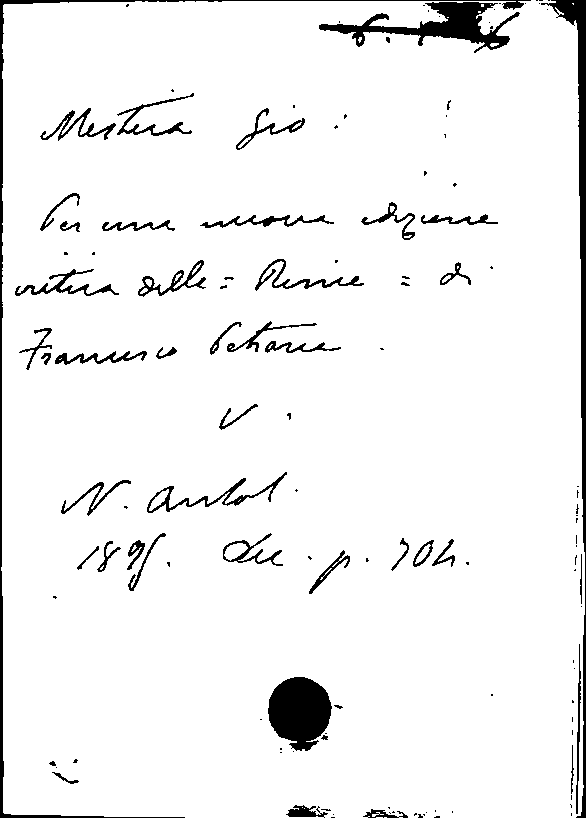 Mestica Gio:
Per una nuova edizione
critica delle = Rime = di
Francesco Petrarca.
V.
N. Antol.
1895. Dic. p. 704.